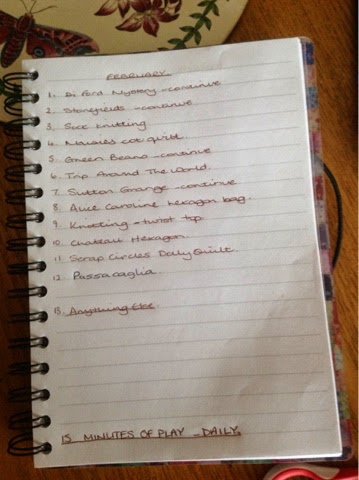 FEBRUARY.
1. Di Ford Mystery - continue
2. Stonefields - continue
3. Sock knitting
4. Maisies cot quilt.
5. Green Beans - continue
6. Trip Around The World.
7. Sutton Grange - continue
8. Alice Caroline hexagon bag.
9. Knitting - twist top
10. Chateau Hexagon.
11. Scrap Circles Dolly Quilt.
12. Passacaglia.
13. Anything Else
15 MINUTES OF PLAY - DAILY.